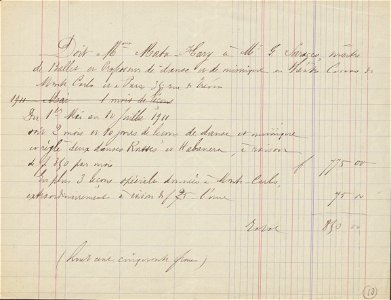 Doit Mme Mata-Hary à Mr G Saracco, maître
de Ballet et Professeur de danse et de mimique au Théâtre
Monte Carlo et à Paris
1911 Mai 1 mois de leçons
Du 1er Mai au 10 Juillet 1911
soit 2 mois et 10 jours de leçons de danse et mimique
et réglé deux danses Russe et Habanera, à raison
de f 350 par mois f 775 00
En plus 3 leçons spéciales données à Monte Carlo
extraordinairement à raison de f 25 l'une 75 00
Total 850 00
(huit cent cinquante francs)
(10)